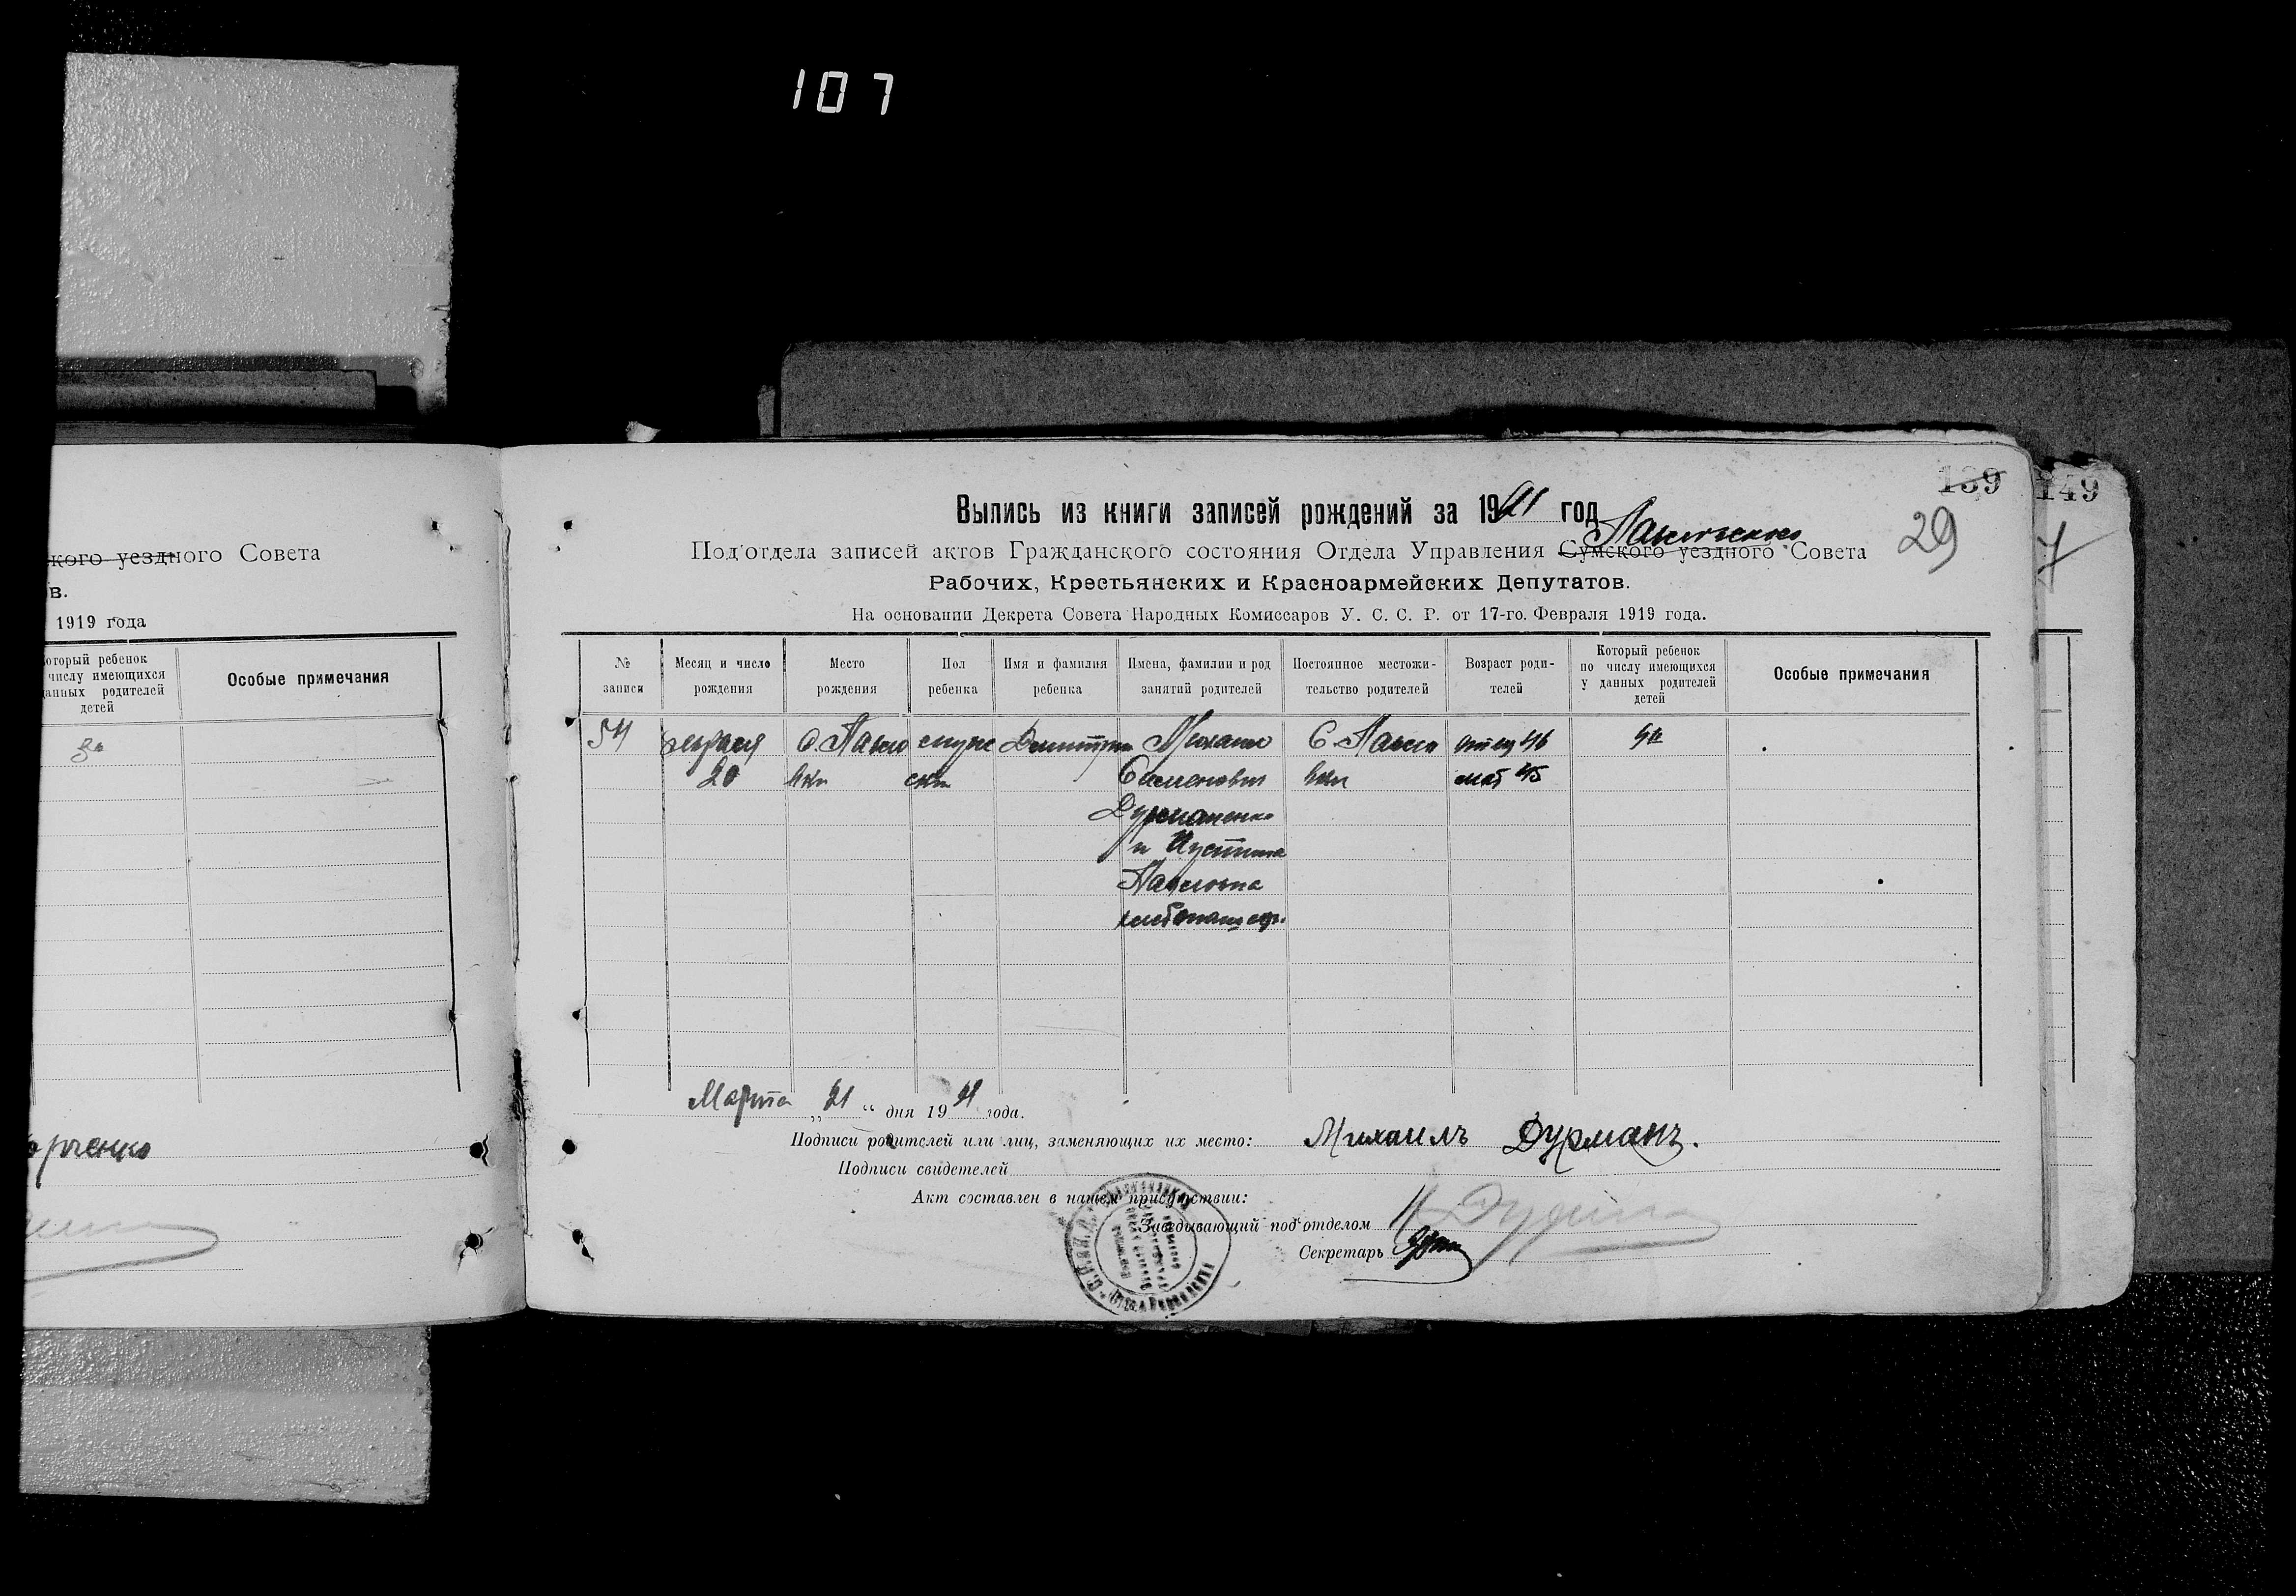 107
139
149
29
7
Выпись из книги записей рождений за 1921 год
Павловского
Под'отдела записей актов Гражданского состояния Отдела Управления Сумского уездного Совета
Рабочих, Крестьянских и Красноармейских Депутатов.
На основании Декрета Совета Народных Комиссаров У. С. С. Р. от 17-го Февраля 1919 года.
ского уездного Совета
в.
1919 года
оторый ребенок
числу имеющихся
данных родителей
детей
Особые примечания
№ записи
Месяц и число рождения
Место рождения
Пол ребенка
Имя и фамилия ребенка
Имена, фамилии и род занятий родителей
Постоянное местожительство родителей
Возраст родителей
Который ребенок по числу имеющихся у данных родителей детей
Особые примечания
54 февраля с. Павло мужс Димитрий Михаил С. Павло отец 46
20 вки ской Семенович вки мать 45
Дурманенко
и Иустина
Павловна
хлебопашцы.
Марта „21“ дня 1921 года.
Подписи родителей или лиц, заменяющих их место: Михаилъ Дурманъ.
Подписи свидетелей
Акт составлен в нашем присутствии:
Заведывающий под'отделом
Секретарь
рченко